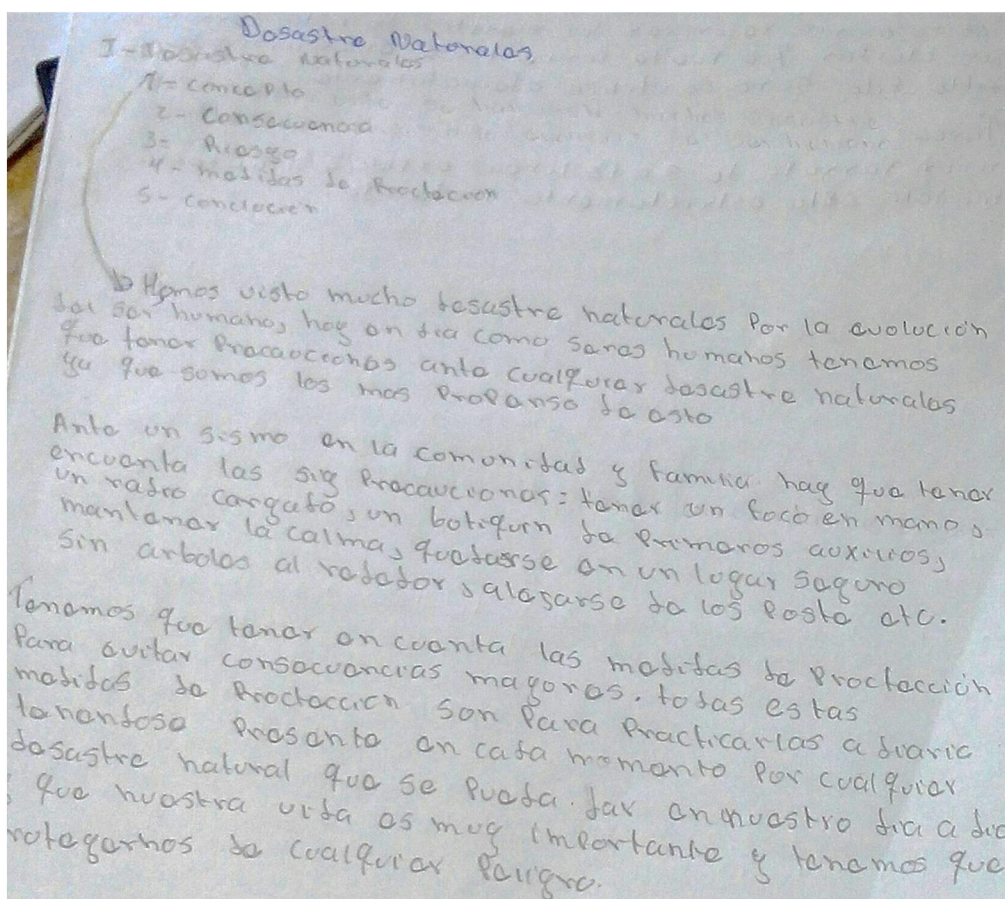 Desastre Naturales
I - Desastre Naturales
1 - concepto
2 - Consecuencia
3 - Riesgo
4 - medidas de Proctección
5 - conclución
Hemos visto mucho desastre naturales Por la evolución
del ser humano, hoy en dia como seres humanos tenemos
que tener Precauciones ante cualquier desastre naturales
ya que somos los mas Propenso de esto
Ante un sismo en la comunidad y familia hay que tener
encuenta las sig Precauciones: tener un foco en mano,
un radio cargado, un botiquin de Primeros auxilios,
mantener la calma, quedarse en un lugar seguro
sin arboles al rededor, alejarse de los Poste etc.
Tenemos que tener en cuenta las medidas de Proctección
Para evitar consecuencias mayores. todas estas
medidas de Proctección son Para Practicarlas a diario
teniendose Presente en cada momento Por cualquier
desastre natural que se Pueda dar en nuestro dia a dia
que nuestra vida es muy importante y tenemos que
rotegernos de cualquier Peligro.